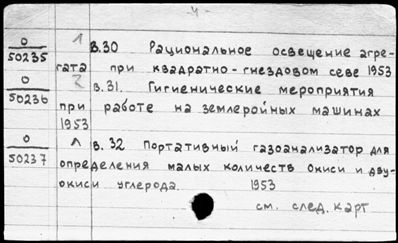 - 4 -
0 1 в.30 Рациональное освещение агре-
50235 гата при квадратно-гнездовом севе 1953
0 2 в.31. Гигиенические мероприятия
50236 при работе на землеройных машинах
1953
0 1 в.32 Портативный газоанализатор для
50237 определения малых количеств окиси и дву-
окиси углерода. 1953
см. след. карт